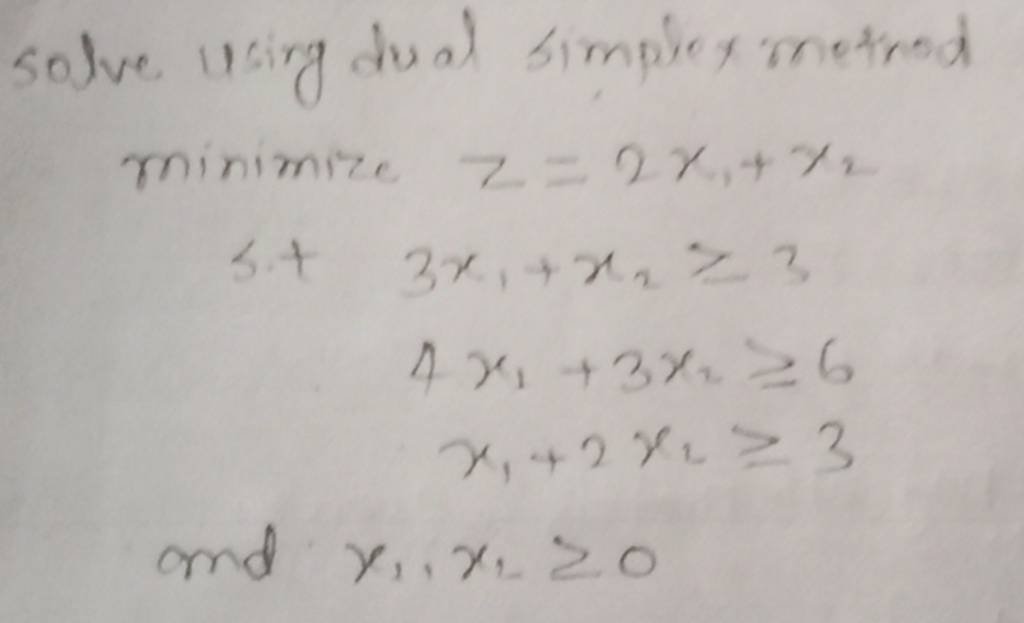 solve using dual simplex method
minimize z = 2x₁ + x₂
s.t 3x₁ + x₂ ≥ 3
4x₁ + 3x₂ ≥ 6
x₁ + 2x₂ ≥ 3
and x₁, x₂ ≥ 0